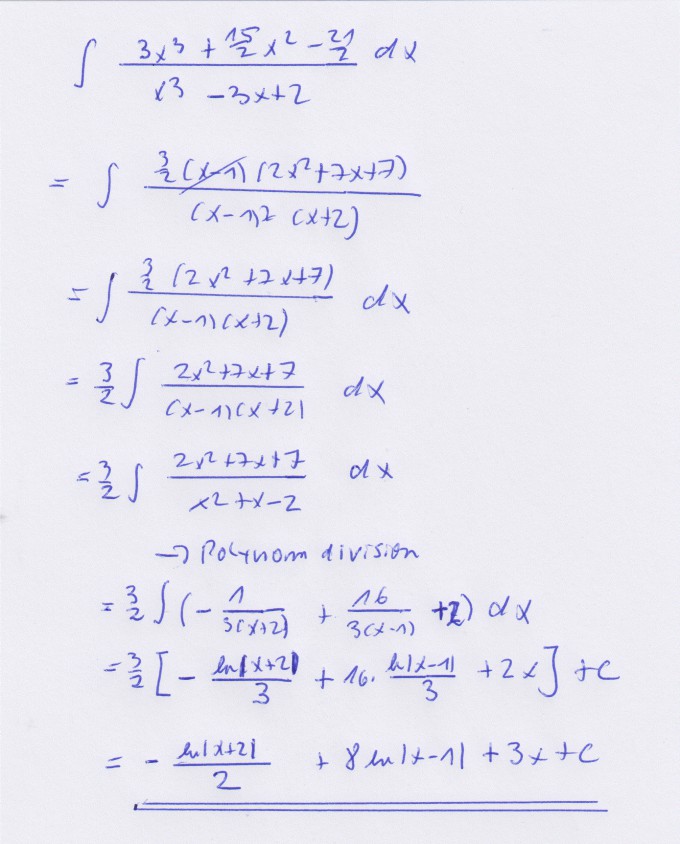 ∫ (3x³ + 15/2 x² − 21/2)/(x³ − 3x + 2) dx
= ∫ (3/2 (x−1) (2x²+7x+7))/((x−1)² (x+2))
= ∫ (3/2 (2x²+7x+7))/((x−1)(x+2)) dx
= 3/2 ∫ (2x²+7x+7)/((x−1)(x+2)) dx
= 3/2 ∫ (2x²+7x+7)/(x²+x−2) dx
→ Polynomdivision
= 3/2 ∫ (− 1/(3(x+2)) + 16/(3(x−1)) + 2) dx
= 3/2 [− ln|x+2|/3 + 16 · ln|x−1|/3 + 2x] + c
= − ln|x+2|/2 + 8 ln|x−1| + 3x + c